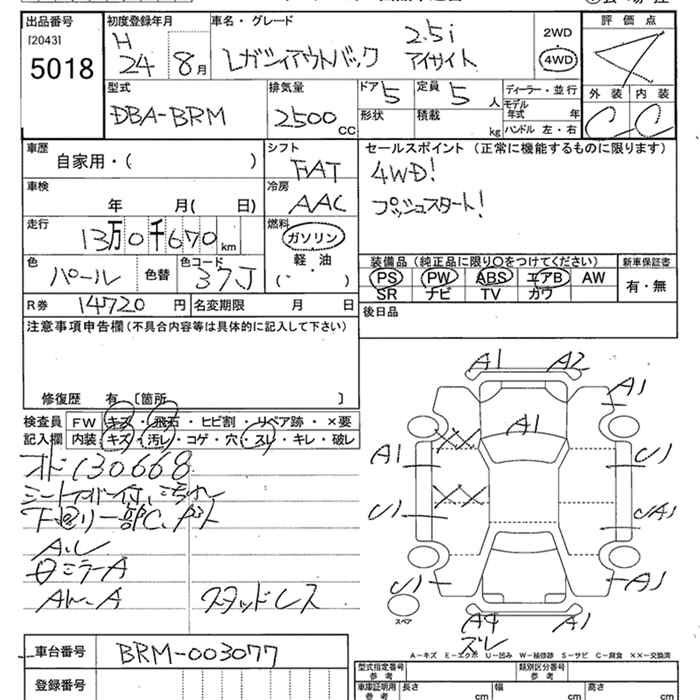 出品番号 初度登録年月 車名・グレード 2WD 評価点
[2043] H 2.5i 4WD 4
5018 24 8月 レガシィアウトバック アイサイト
外装 内装
C C
型式 排気量 ドア 5 定員 5 人 ディーラー・並行
DBA-BRM 2500 CC 形状 積載 kg モデル年式 年
ハンドル 左・右
車歴 シフト セールスポイント (正常に機能するものに限ります)
自家用・( ) FAT 4WD!
車検 冷房 プッシュスタート!
年 月( 日) AAC
走行 燃料
13万0千670km ガソリン
軽油
( ・ )
装備品 (純正品に限り○をつけてください) 新車保証書
色 パール 色替 色コード 37J
PS PW ABS エアB AW 有・無
SR ナビ TV カワ
R券 14720 円 名変期限 月 日
後日品
注意事項申告欄 (不具合内容等は具体的に記入して下さい)
修復歴 有 〔箇所 〕
検査員 FW キズ・飛石・ヒビ割・リペア跡・×要
記入欄 内装 キズ・汚レ・コゲ・穴・スレ・キレ・破レ
A1 A2
A1
A1
A1 U1
U1 UA1
U1 A1
スペア
A4 A1
ズレ
オド130668
下回リ一部C.
日ミラーA
スタッドレス
A-キズ E-エクボ U-凹み W-補修跡 S-サビ C-腐食 XX-交換済
車台番号 BRM-003077
登録番号
型式指定番号 参考 類別区分番号 参考
車庫証明用 参考 長さ cm 幅 cm 高さ cm